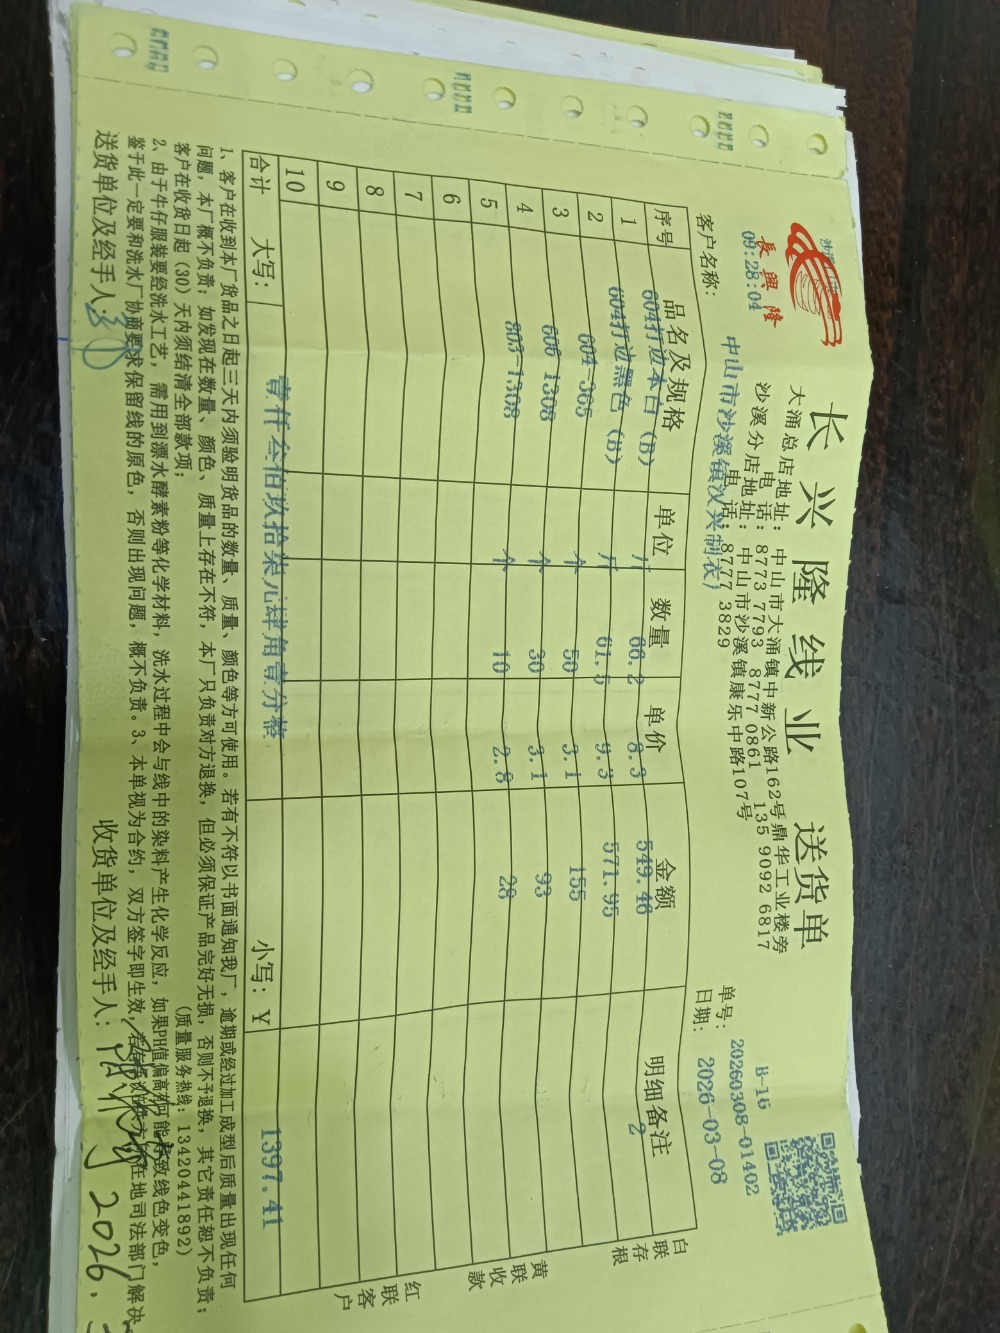 长兴隆线业 送货单
長興隆
09:28:04
大涌总店地址: 中山市大涌镇中新公路162号鼎华工业楼旁
电 话: 8773 7793 8777 0861 135 9092 6817
沙溪分店地址: 中山市沙溪镇康乐中路107号
电 话: 8777 3829
B-16
单号: 20260308-01402
客户名称: 中山市沙溪镇汉兴制衣厂
日期: 2026-03-08
序号 品名及规格 单位 数量 单价 金额 明细备注
1 604打边本白 (B) 斤 66.2 8.3 549.46 2
2 604打边黑色 (B) 斤 61.5 9.3 571.95
3 604-365 个 50 3.1 155
4 606-1308 个 30 3.1 93
5 803-1308 个 10 2.8 28
6
7
8
9
10
合计 大写: 壹仟叁佰玖拾柒元肆角壹分整 小写: ¥ 1397.41
白联存根
黄联收款
红联客户
1、客户在收到本厂货品之日起三天内须验明货品的数量、质量、颜色等方可使用。若有不符以书面通知我厂,逾期或经过加工成型后质量出现任何
问题,本厂概不负责;如发现在数量、颜色、质量上存在不符,本厂只负责对方退换,但必须保证产品完好无损,否则不予退换,其它责任恕不负责;
客户在收货日起(30)天内须结清全部款项;
(质量服务热线: 13420441892)
2、由于牛仔服装要经洗水工艺,需用到漂水酵素粉等化学材料,洗水过程中会与线中的染料产生化学反应,如果PH值偏高有可能导致线色变色,
鉴于此一定要和洗水厂协商要求保留线的原色,否则出现问题,概不负责。3、本单视为合约,双方签字即生效,在地司法部门解决
送货单位及经手人:
收货单位及经手人: 2026.